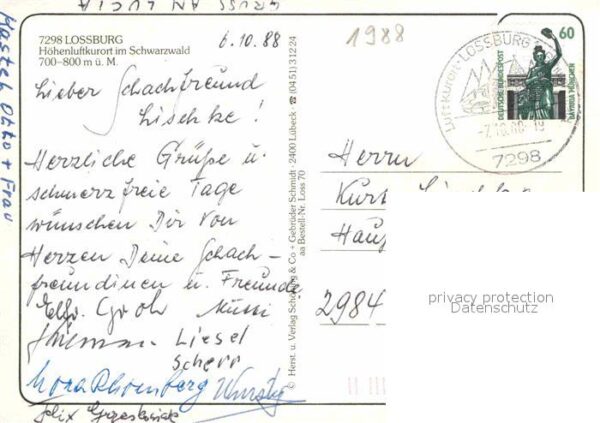 GRUSS AN LUCIA
Otto + Frau
7298 LOSSBURG
Höhenluftkurort im Schwarzwald
700–800 m ü. M.
6.10.88
1988
Lieber Schachfreund
Lischke!
Herzliche Grüße u.
schmerzfreie Tage
wünschen Dir von
Herzen Deine Schach-
freundinen u. Freunde
Groh
Liesel
Scherr
Nora
Felix
© Herst. u. Verlag Schöning & Co + Gebrüder Schmidt · 2400 Lübeck · ☎ (04 51) 3 12 24
aa Bestell-Nr. Loss 70
Luftkurort · LOSSBURG
7298
60
DEUTSCHE BUNDESPOST
BAVARIA MÜNCHEN
Herrn
Kurt
2984
privacy protection
Datenschutz